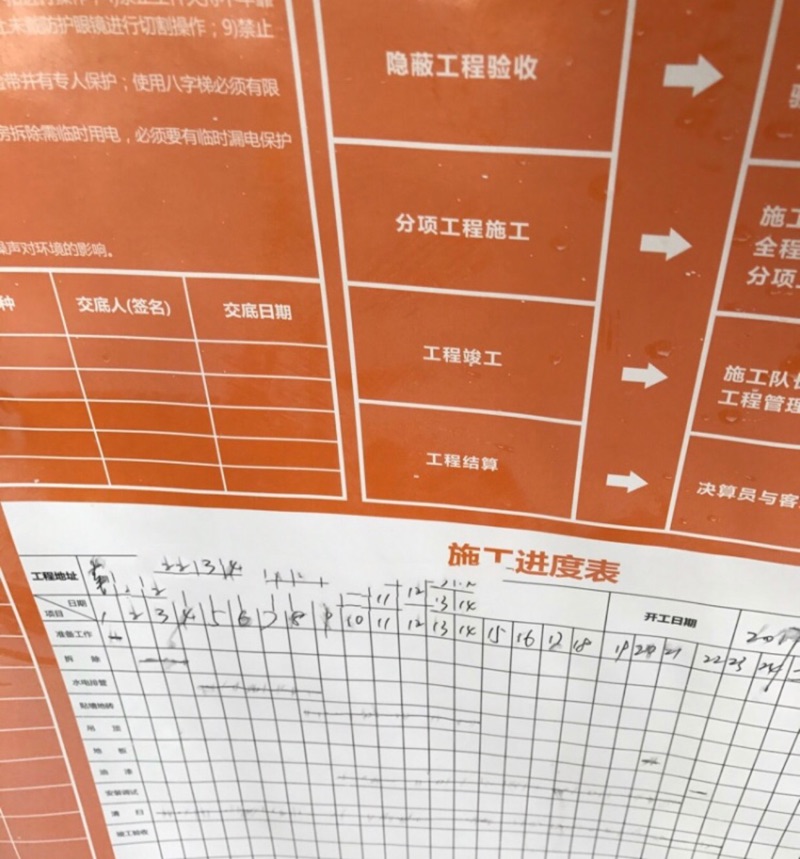 未戴防护眼镜进行切割操作；9)禁止
带并有专人保护；使用八字梯必须有限
房拆除需临时用电，必须要有临时漏电保护
噪声对环境的影响。
种 交底人(签名) 交底日期
隐蔽工程验收
分项工程施工
施工
全程
分项
工程竣工
施工队长
工程管理
工程结算
决算员与客
施工进度表
工程地址
开工日期
日期
项目
1 2 3 4 5 6 7 8 9 10 11 12 13 14 15 16 17 18 19 20 21 22 23 24
准备工作
拆 除
水电排管
贴墙地砖
吊 顶
地 板
油 漆
安装调试
清 扫
竣工验收